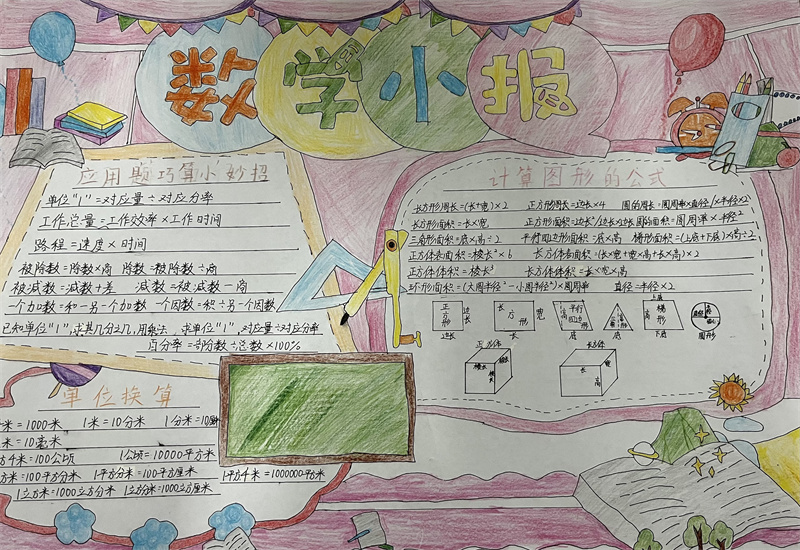 数学小报
应用题巧算小妙招
单位"1"=对应量÷对应分率
工作总量=工作效率×工作时间
路程=速度×时间
被除数=除数×商 除数=被除数÷商
被减数=减数+差 减数=被减数-商
一个加数=和-另一个加数 一个因数=积÷另一个因数
已知单位"1",求其几分之几,用乘法 求单位"1",对应量÷对应分率
百分率=部分数÷总数×100%
计算图形的公式
长方形周长=(长+宽)×2 正方形周长=边长×4 圆的周长=圆周率×直径/×半径×2
长方形面积=长×宽 正方形面积=边长²/边长×边长 圆的面积=圆周率×半径²
三角形面积=底×高÷2 平行四边形面积=底×高 梯形面积=(上底+下底)×高÷2
正方体表面积=棱长²×6 长方体表面积=(长×宽+宽×高+长×高)×2
正方体体积=棱长³ 长方体体积=长×宽×高
环形面积=(大圆半径²-小圆半径²)×圆周率 直径=半径×2
正方形 边长 边长
长方形 宽 长
平行四边形 高 底
高 底
上底 梯形 高 下底
圆形
正方体 棱长 棱长
长方体 长 宽 高
单位换算
米=1000米 1米=10分米 1分米=10厘
米=10毫米
方千米=100公顷 1公顷=10000平方米
方米=100平方分米 1平方分米=100平方厘米 1平方千米=1000000平方米
1立方米=1000立方分米 1立方分米=1000立方厘米